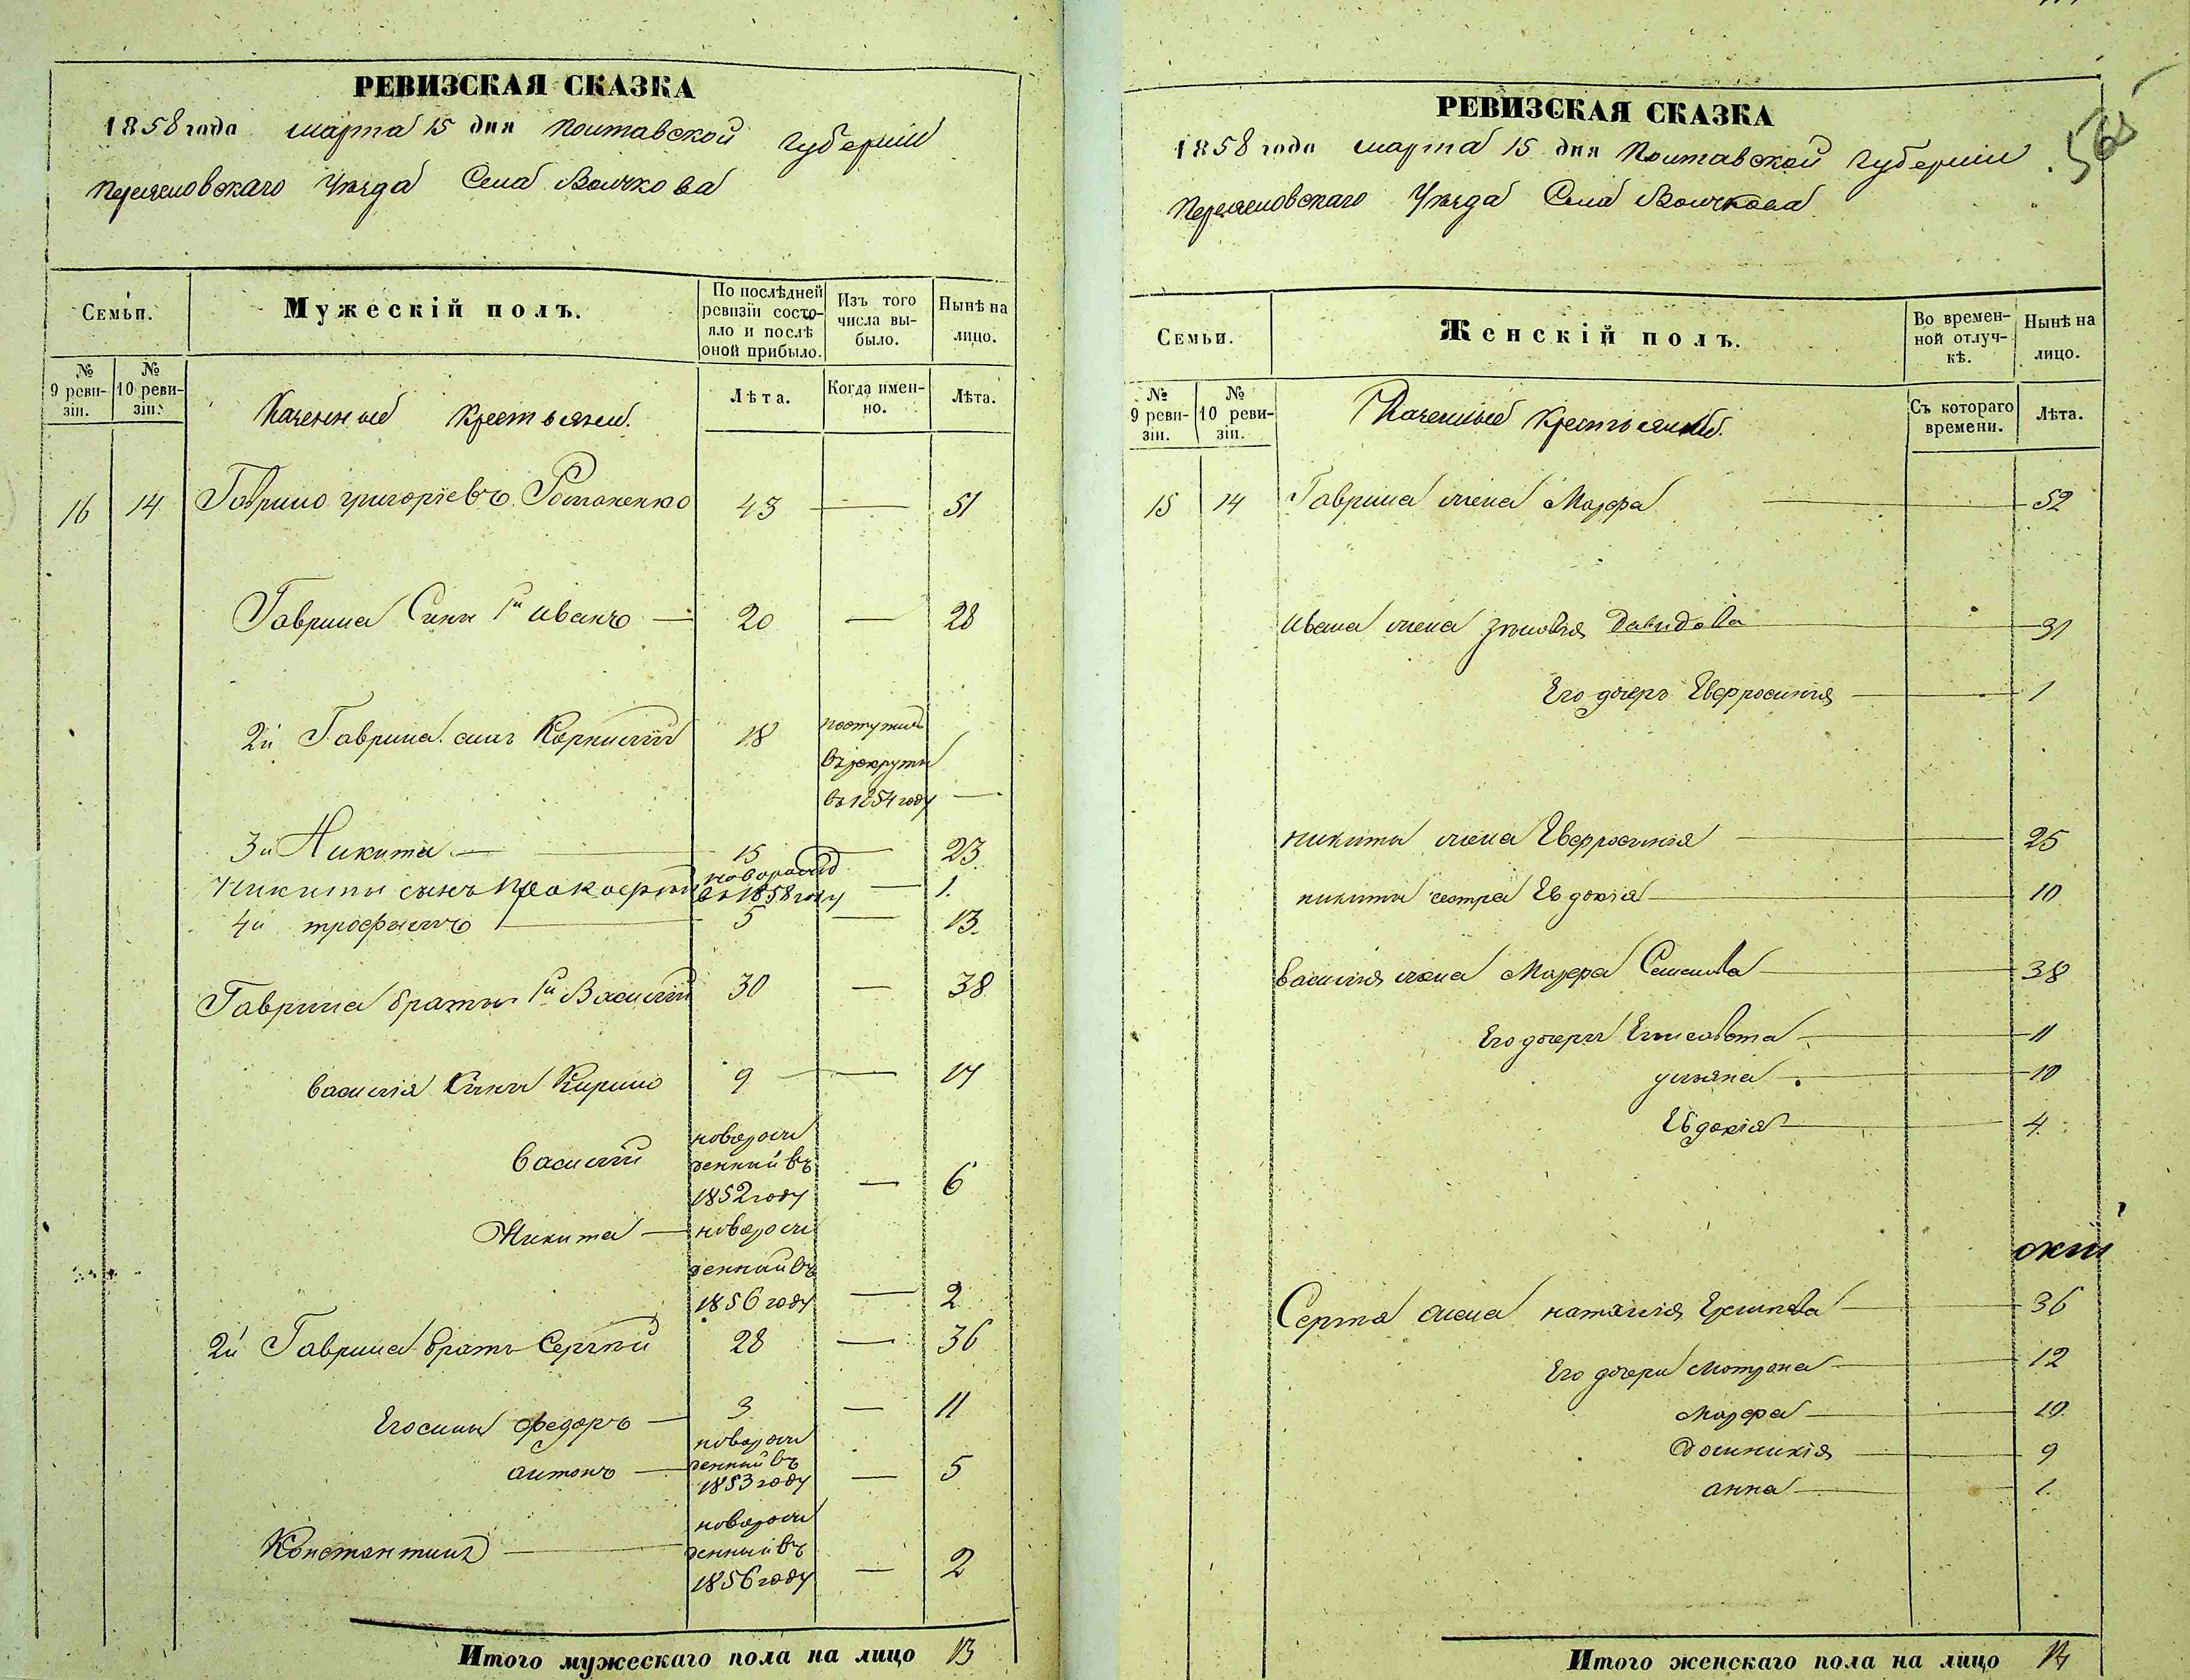 РЕВИЗСКАЯ СКАЗКА
1858 года марта 15 дня Полтавской Губернии
Переяславскаго Уезда Села Волчкова
Семьи.
Мужескій полъ.
По послѣдней ревизіи состояло и послѣ оной прибыло.
Изъ того числа выбыло.
Нынѣ на лицо.
№ 9 ревизіи.
№ 10 ревизіи.
Лѣта.
Когда именно.
Лѣта.
Казенные Крестьяне.
16 14 Гаврило григоріевъ Романенко 43 — 51
Гаврила Сины 1й иванъ — 20 — 28
2й Гаврила синъ Корнилій 18 поступилъ
въ рекруты
въ 1854 году —
3й Никита — 15 — 23
Никиты сынъ Прокофій новорожд
въ 1858 году — 1.
4й трофимъ 5 — 13.
Гаврила браты 1й Василій 30 — 38
василія Сыны Кирило 9 — 17
василій новорож
денний въ
1852 году — 6
Никита — новорож
денний въ
1856 году — 2
2й Гаврила братъ Сергѣй 28 — 36
Его сины федоръ — 3 — 11
антонъ — новорож
денний въ
1853 году — 5
Константинъ новорож
денний въ
1856 году — 2
Итого мужескаго пола на лицо 13
РЕВИЗСКАЯ СКАЗКА
1858 года марта 15 дня Полтавской Губерніи
Переяславскаго Уезда Села Волчкова
Семьи.
Женскій полъ.
Во временной отлучкѣ.
Нынѣ на лицо.
№ 9 ревизіи.
№ 10 ревизіи.
Съ котораго времени.
Лѣта.
Казенные Крестьянки.
15 14 Гаврила жена Марфа — 52
Ивана жена зѣновія Давидова 31
Его дочерь Евфросинія — 1
никиты жена Евфросинія — 25
никиты сестра Евдокія — 10
василія жена Марфа Семенова — 38
Его дочери Елисавета — 11
уляна — 10
Евдокія — 4
Сергѣя жена наталія Есипова — 36
Его дочери Мотрона — 12
Марфа — 10
Домникія — 9
анна — 1.
Итого женскаго пола на лицо 14